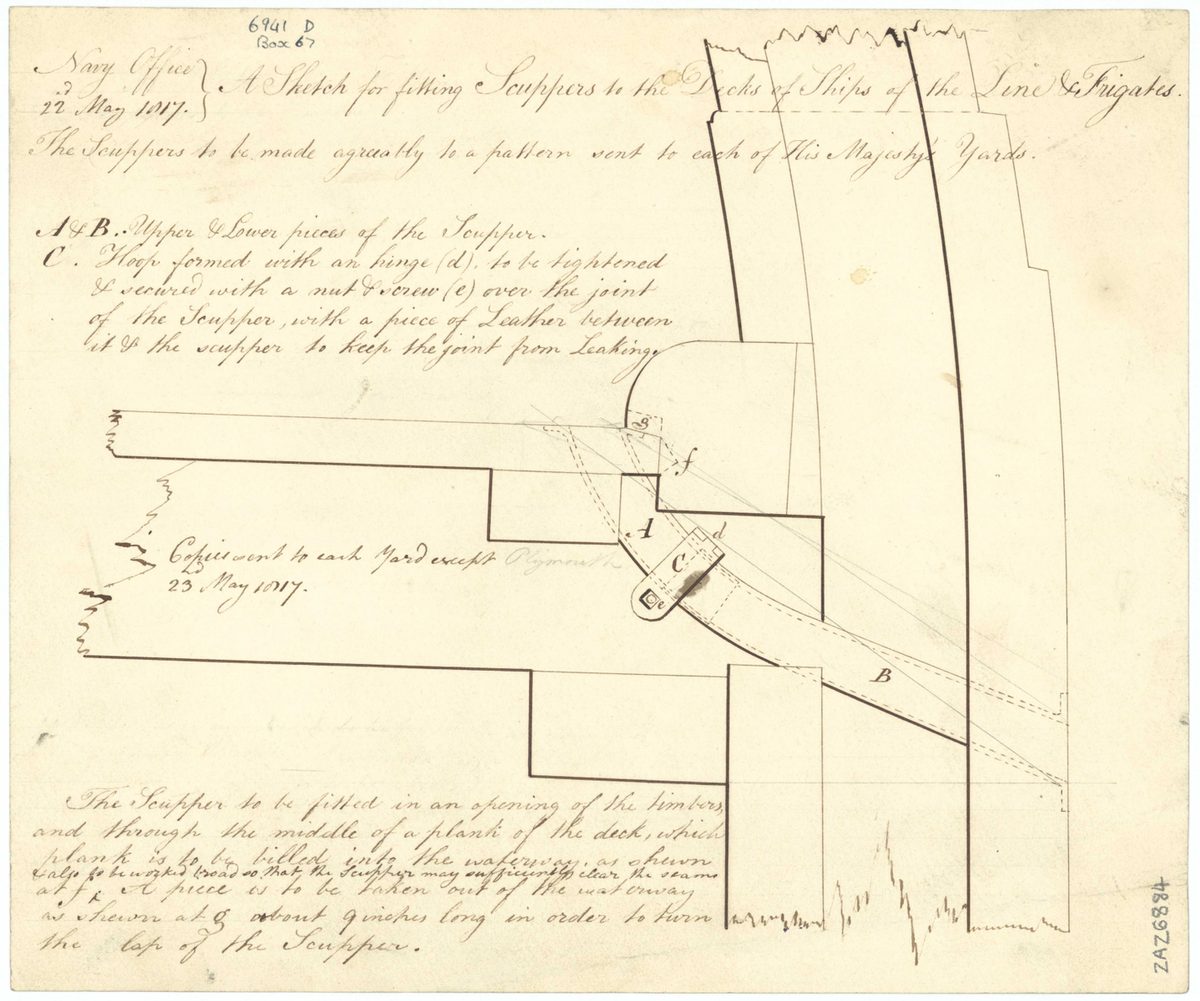 6941 D
Box 67
Navy Office
22nd May 1817. } A Sketch for fitting Scuppers to the Decks of Ships of the Line & Frigates.
The Scuppers to be made agreeably to a pattern sent to each of His Majesty's Yards.
A & B. Upper & Lower pieces of the Scupper.
C. Hoop formed with an hinge (d). to be tightened
& secured with a nut & screw (e) over the joint
of the Scupper, with a piece of Leather between
it & the scupper to keep the joint from Leaking.
g
f
A
d
C
e
B
Copies sent to each Yard except Plymouth
23rd May 1817.
The Scupper to be fitted in an opening of the timbers,
and through the middle of a plank of the deck, which
plank is to be billed into the waterway, as shewn
& also to be worked broad so that, the Scupper may sufficiently clear the seams
at f. A piece is to be taken out of the waterway
as shewn at g about 9 inches long in order to turn
the lap of the Scupper.
ZAZ6884